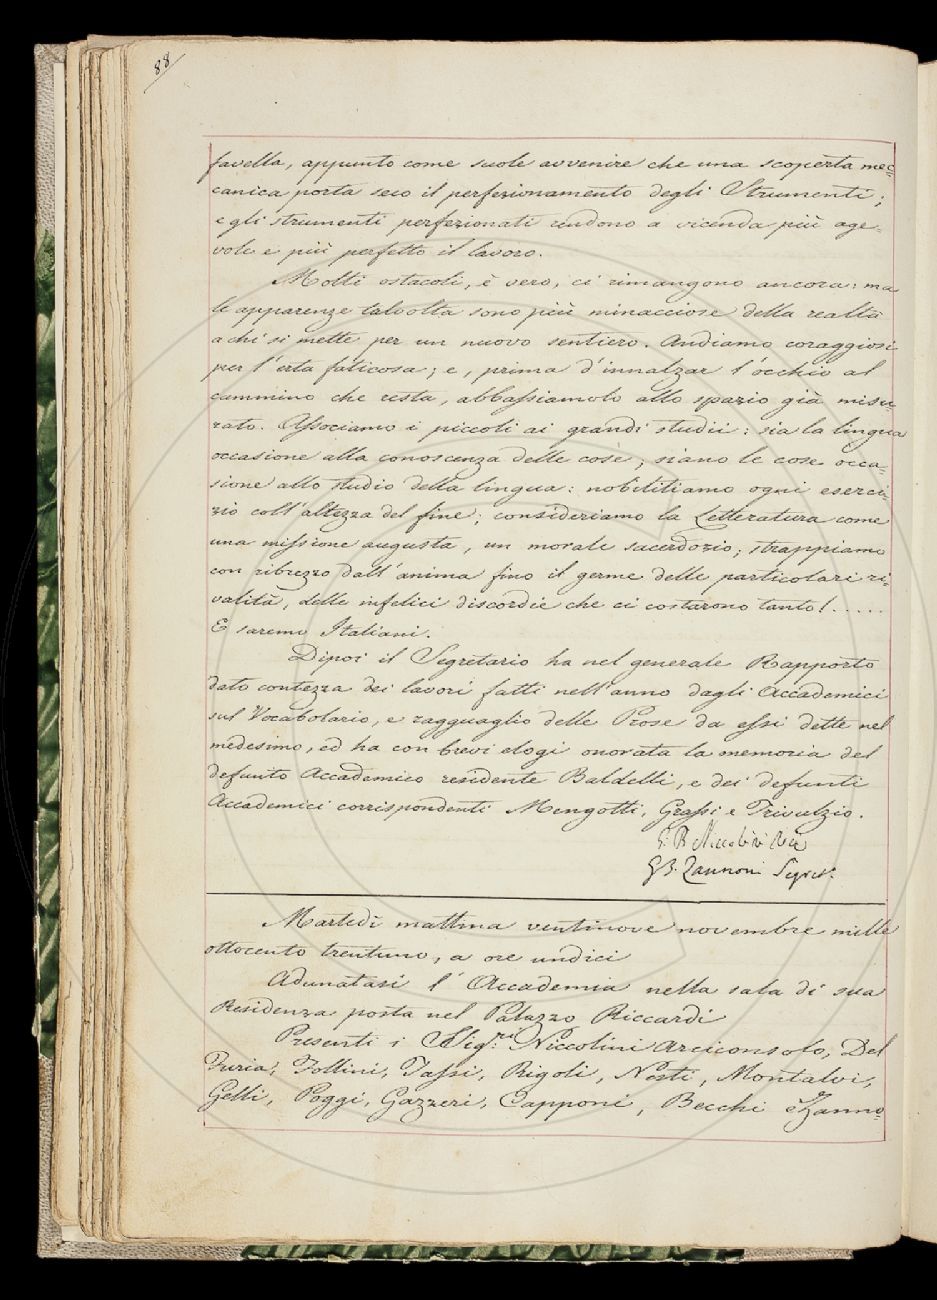 88
favella, appunto come suole avvenire che una scoperta mec=
canica porta seco il perfezionamento degli Strumenti;
e gli strumenti perfezionati rendono a vicenda più age=
vole e più perfetto il lavoro.
Molti ostacoli, è vero, ci rimangono ancora: ma
le apparenze talvolta sono più minacciose della realtà
a chi si mette per un nuovo sentiero. Andiamo coraggiosi
per l'erta faticosa; e, prima d'innalzar l'occhio al
cammino che resta, abbassiamolo allo spazio già misu=
rato. Associamo i piccoli ai grandi studii: sia la lingua
occasione alla conoscenza delle cose; siano le cose occa=
sione allo studio della lingua: nobilitiamo ogni eserci=
zio coll'altezza del fine; consideriamo la Letteratura come
una missione augusta, un morale sacerdozio; strappiamo
con ribrezzo dall'anima fino il germe delle particolari ri=
valità, delle infelici discordie che ci costarono tanto!.....
E saremo Italiani.
Dipoi il Segretario ha nel generale Rapporto
dato contezza dei lavori fatti nell'anno dagli Accademici
sul Vocabolario, e ragguaglio delle Prose da essi dette nel
medesimo, ed ha con brevi elogi onorata la memoria del
defunto Accademico residente Baldelli, e dei defunti
Accademici corrispondenti Mengotti, Grassi e Trivulzio.
G. B. Niccolini
G. B. Zannoni Segret.
Martedì mattina ventinove novembre mille
ottocento trentuno, a ore undici
Adunatasi l'Accademia nella sala di sua
Residenza posta nel Palazzo Riccardi
Presenti i Sig.ri Niccolini Arciconsolo, Del
Furia, Follini, Tassi, Rigoli, Nesti, Montalvi,
Gelli, Poggi, Gazzeri, Capponi, Becchi e Zanno=